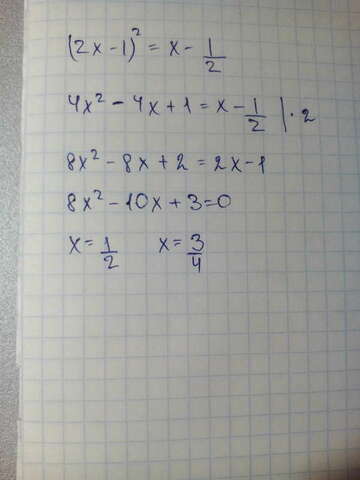 (2x-1)² = x - 1/2
4x² - 4x + 1 = x - 1/2 | · 2
8x² - 8x + 2 = 2x - 1
8x² - 10x + 3 = 0
x = 1/2 x = 3/4